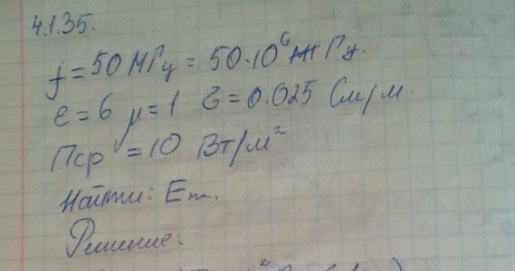 4.1.35.
f = 50 МГц = 50·10⁶ Гц.
ε = 6 μ = 1 σ = 0.025 См/м.
Пср = 10 Вт/м²
Найти: Em.
Решение: